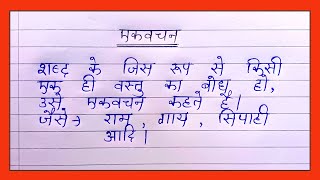 एकवचन
शब्द के जिस रूप से किसी
एक ही वस्तु का बोध हो,
उसे एकवचन कहते हैं।
जैसे→ राम, गाय, सिपाही
आदि।